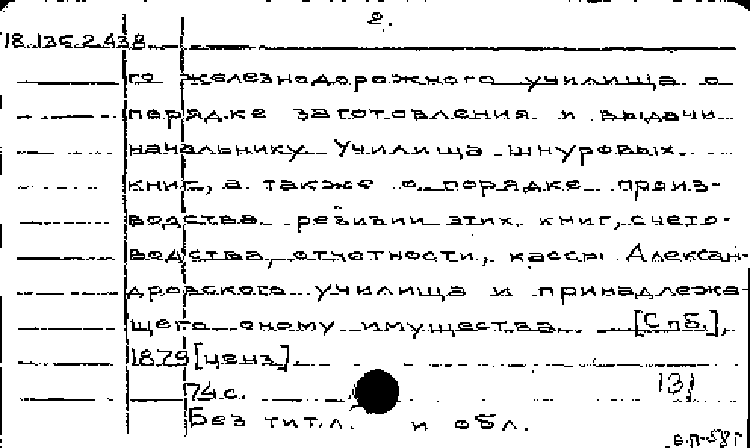 2.
18.136.2.438
го железнодорожного училища о
порядке заготовления и выдачи
начальнику Училища шнуровых
книг, а также о порядке произ-
водства ревизии этих книг, счето-
водства, отчетности, кассы Алексан-
дровского училища и принадлежа-
щего оному имущества. [СПБ.],
1879 [ценз].
74 с.
131
Без тит. л. и обл.